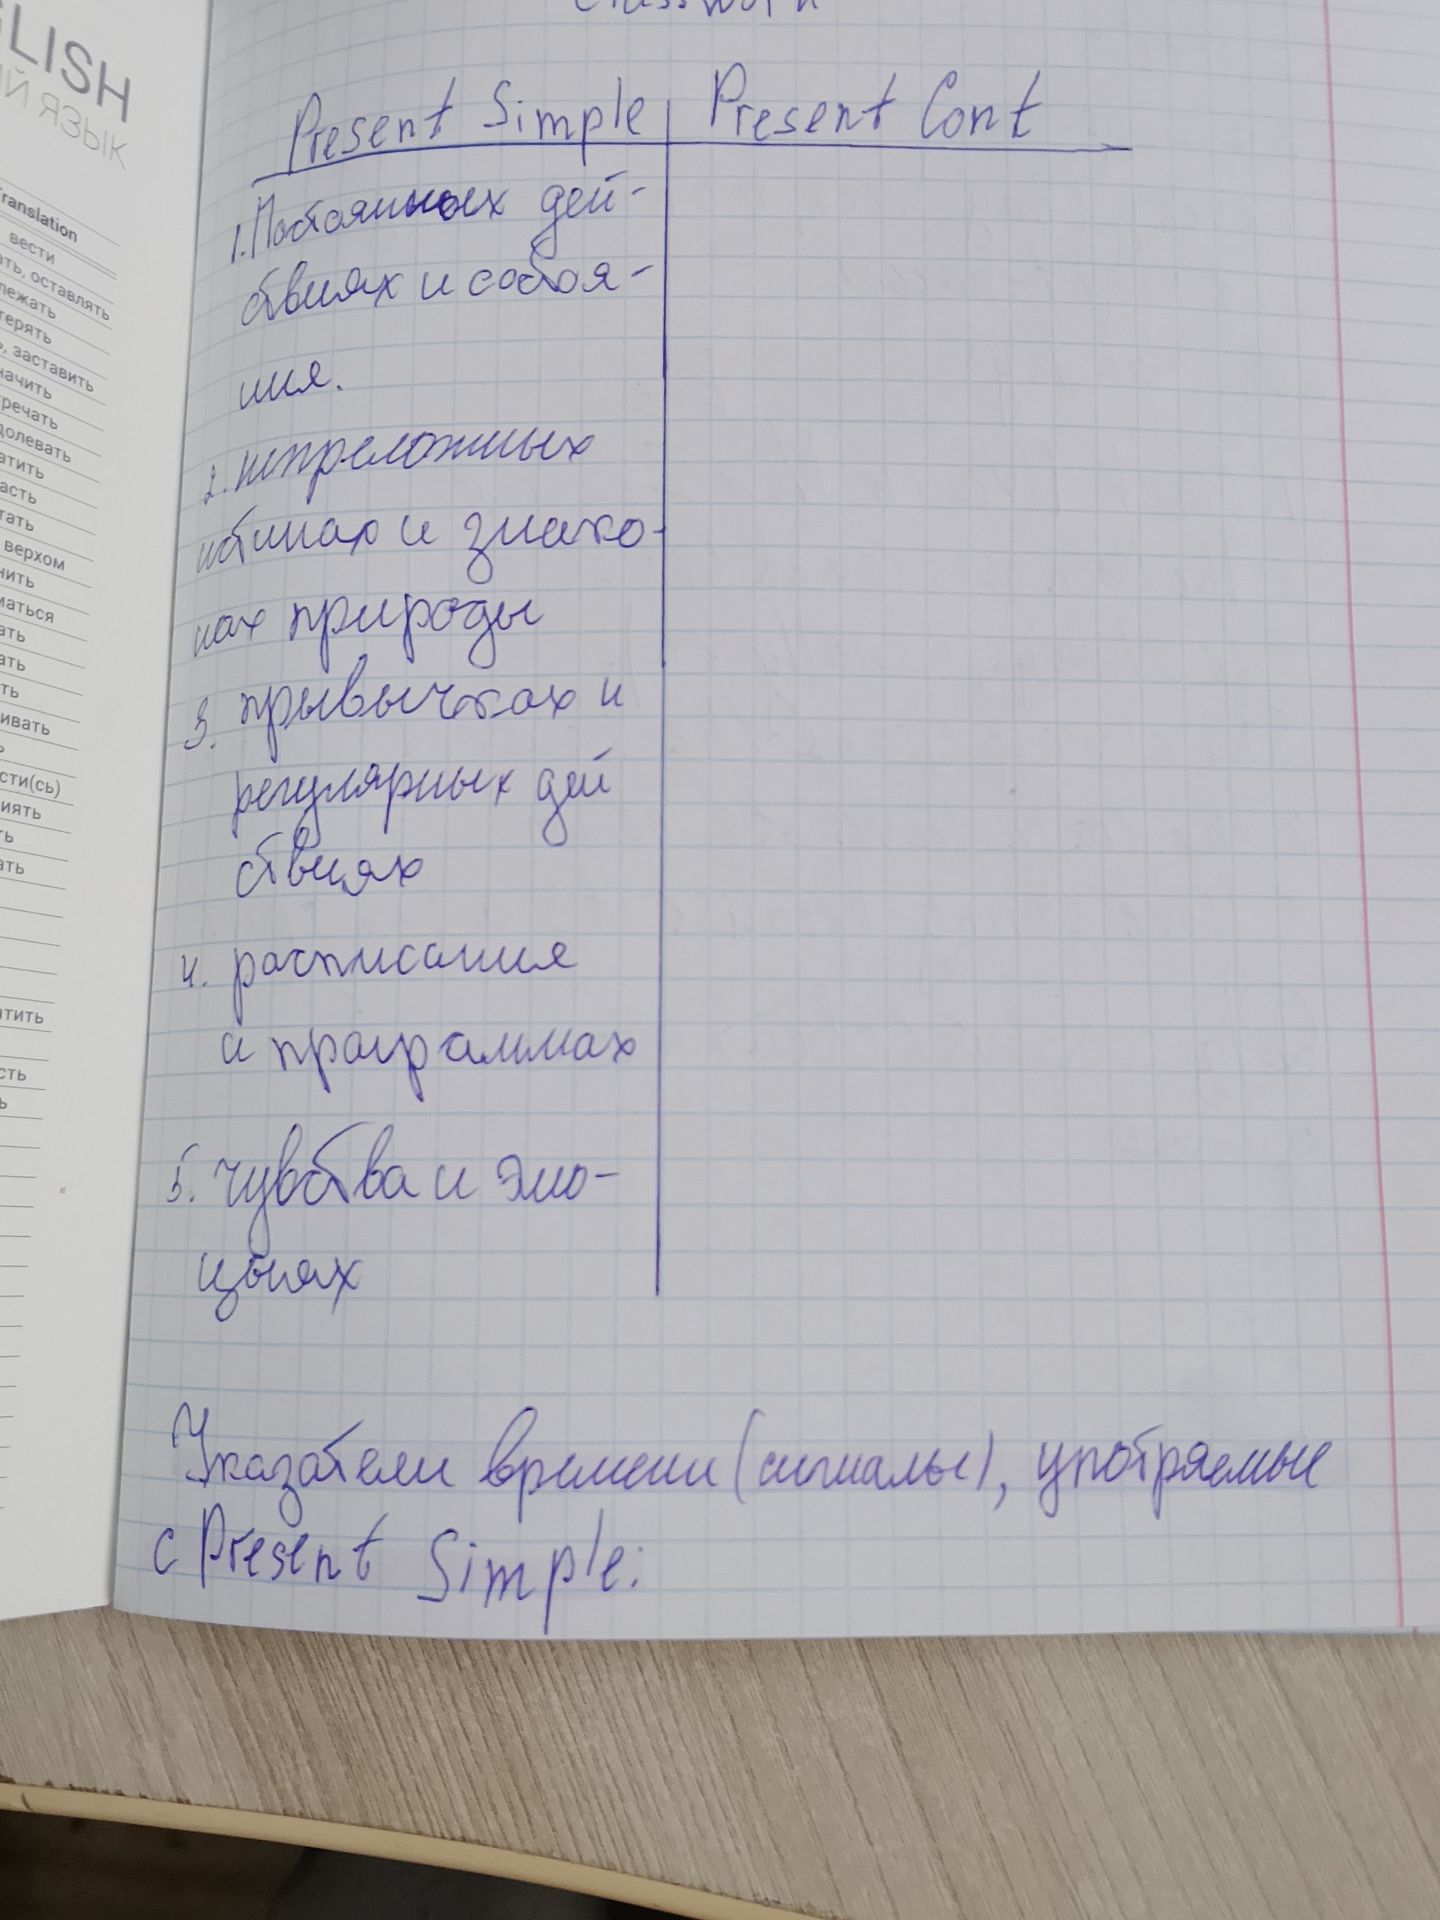 Classwork
GLISH
ИЙ ЯЗЫК
Translation
вести
ать, оставлять
лежать
терять
ь, заставить
начить
тречать
долевать
атить
асть
тать
верхом
нить
маться
ать
ать
ть
ивать
ь
сти(сь)
иять
ть
ать
атить
сть
ь
Present Simple Present Cont
1. Постоянных дей-
ствиях и состоя-
ния.
2. непреложных
истинах и знако-
нах природы
3. прывычках и
регулярных дей
ствиях
4. расписания
и программах
5. чувства и эмо-
цыях
Указатели времени (сигналы), употряемые
с Present Simple: